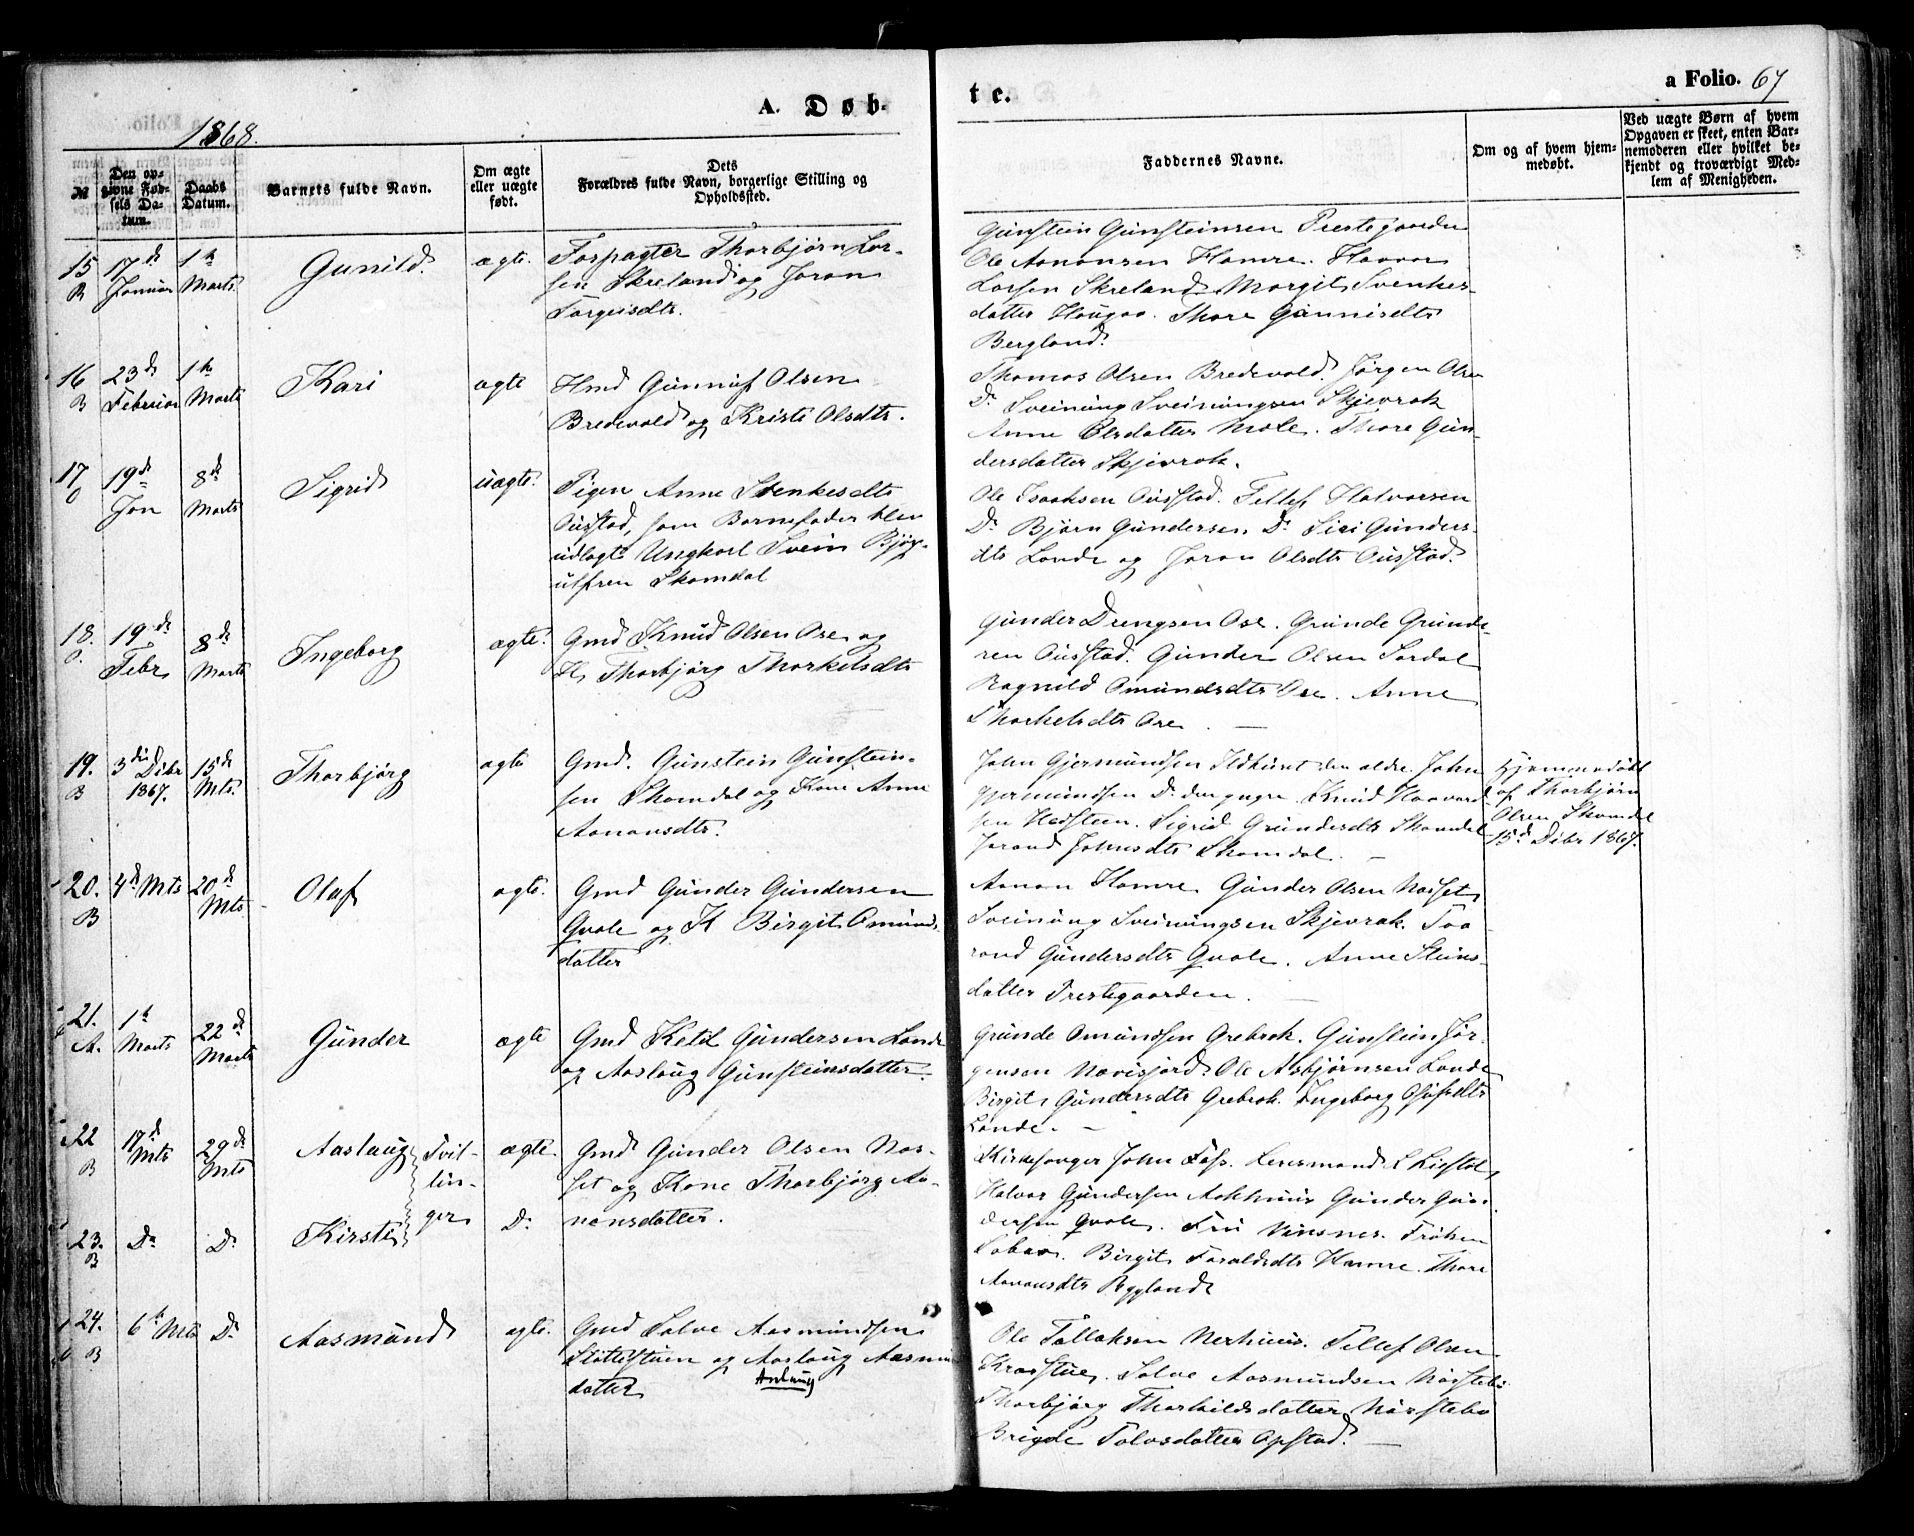 A. Døb-
te.
a Folio. 67
1868.
№
Den op-
givne Fød-
sels Da-
tum.
Daabs
Datum.
Barnets fulde Navn.
Om ægte
eller uægte
født.
Dets
Forældres fulde Navn, borgerlige Stilling og
Opholdssted.
Faddernes Navne.
Om og af hvem hjem-
medøbt.
Ved uægte Børn af hvem
Opgaven er skeet, enten Bar-
nemoderen eller hvilket be-
kjendt og troværdigt Med-
lem af Menigheden.
15 B
17de Januar
1ste Marts
Gunild.
ægte.
Forpagter Thorbjørn Lar-
sen Skreland og Joron
Torgeisdtr.
Gunstein Gunsteinsen Prestegaarden
Ole Aanonsen Hamre. Haavor
Larsen Skreland Margit Svenkes-
datter Haugaa. Thore
Bergland.
16 B
23de Februar
1ste Marts
Kari
ægte
Hmd Gunnuf Olsen
Bredevold og Kristi Olsdtr.
Thomas Olsen Bredevold. Jørgen Olsen
Do. Sveinung Sveinungsen Skjevrak
Anne Olsdatter Mole. Thore Gun-
dersdatter Skjevrak.
17 O
19de Jan
8de Marts
Sigrid
uægte.
Pigen Anne Svenkesdtr
Ousstad, som Barnefader blev
udlagt Ungkarl Svein Bjøg-
ulfsen Skomdal
Ole Isaaksen Ousstad. Tellef Halvorsen
Do. Bjørn Gundersen Do. Siri Gunders-
dtr Lande og Joron Olsdtr Ousstad.
18. O.
19de Febr
8de Marts
Ingeborg
ægte.
Gmd Knud Olsen Ose og
H. Thorbjørg Thorkelsdtr
Gunder Drengsen Ose. Grunde Grunde-
sen Ousstad. Gunder Olsen Sordal
Ragnild Omundsdtr Ose. Anne
Thorkelsdtr Ose.
19. B
3die Dcbr 1867.
15de Mts.
Thorbjørg
ægte
Gmd. Gunstein Gunstein-
sen Skomdal og Kone Anne
Aanonsdtr.
John Gjermundsen Ildhuset den ældre. John
Gjermundsen Do. den yngre. Knud Haavard-
sen Hedsteen. Sigrid Grundersdtr Skomdal
Jorand Johnsdtr Skomdal.
Hjemmedøbt
af Thorbjørn
Olsen Skomdal
15de Dcbr 1867.
20. B
4de Mts
20de Mts
Olaf
ægte.
Gmd Gunder Gundersen
Qvale og H Birgit Omunds-
datter
Aanon Hamre. Gunder Olsen Nasset
Sveinung Sveinungsen Skjevrak. Taa-
rand Gundersdtr Qvale. Anne Steins-
datter Prestegaarden.
21. A.
1ste Marts
22de Marts
Gunder
ægte
Gmd Ketil Gundersen Lande
og Aaslaug Gunsteinsdatter.
Grunde Omundsen Grebrok. Gunstein Jør-
gensen Navisjord. Ole Asbjørnsen Lande
Birgit Gundersdtr Grebrok. Ingeborg Olsdtr
Lande.
22 B
17de Mts
29de Mts
Aaslaug
Tvil-
lin-
ger
ægte.
Gmd Gunder Olsen Nas-
set og Kone Thorbjørg Aa-
nonsdatter.
23. B
Do
Do
Kirsti
Do.
Kirkesanger John Foss. Lensmand Liestøl,
Halvor Gundersen Aakhuus Gunder Gun-
dersen Qvale. Fru Vinsnes. Frøken
Birgit Taraldsdtr Hamre. Thore
Aanonsdtr Bygland
24. B
6te Mts
Do
Aasmund
ægte.
Gmd Salve Aasmundsen
og Aaslaug Aasmunds-
datter
Anlaug
Ole Tallaksen Nerhuus. Tellef Olsen
Salve Aasmundsen Naustebø
Thorbjørg Thorkildsdatter Naustebø
Brigde Salvesdatter Opstad.